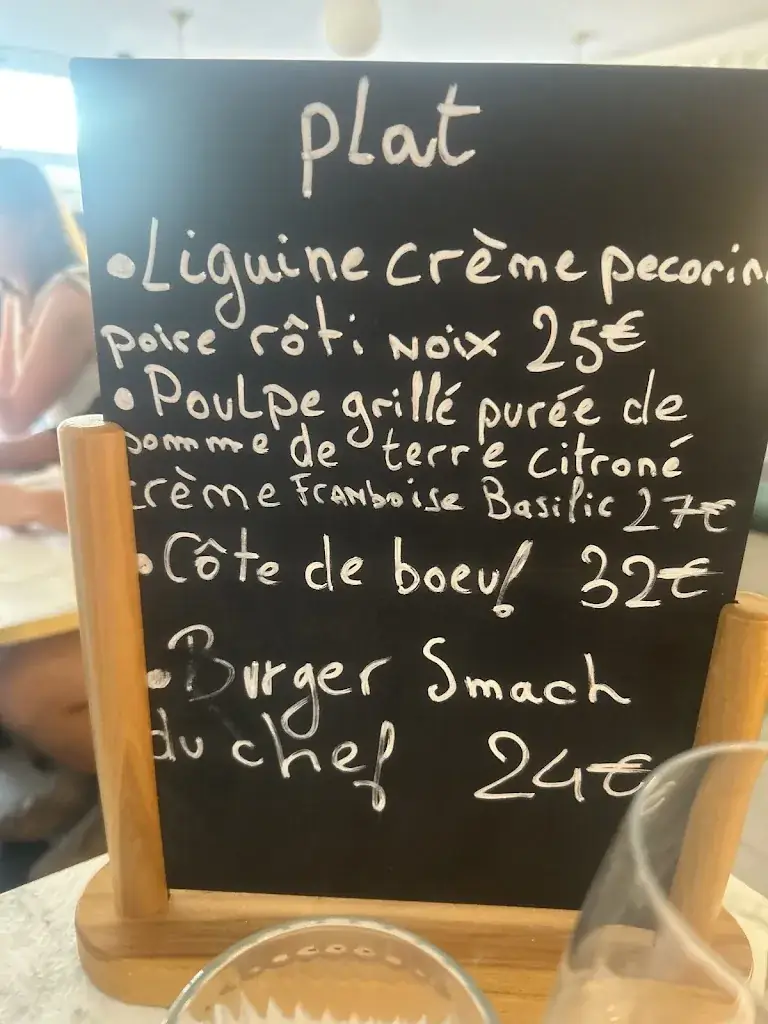 plat
• Liguine crème pecorin
poire rôti noix 25€
• Poulpe grillé purée de
pomme de terre citroné
crème Framboise Basilic 27€
• Côte de boeuf 32€
• Burger Smach
du chef 24€